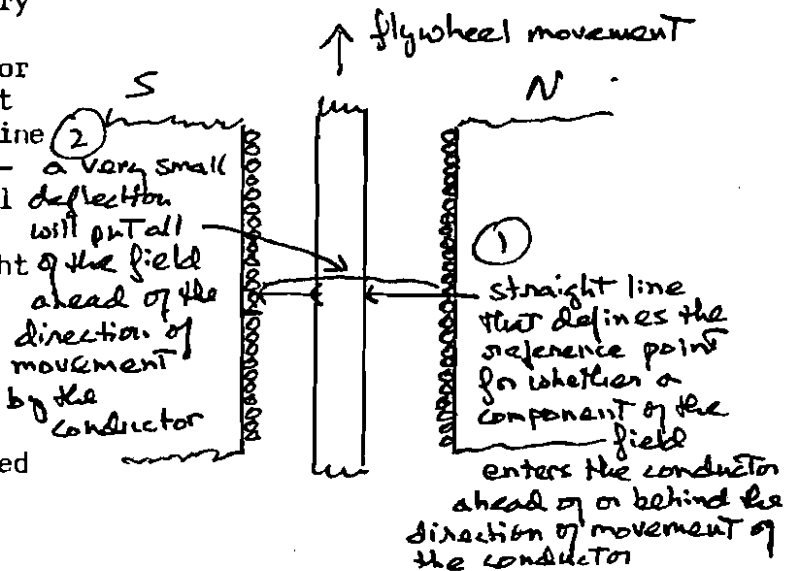 ry
or
t
ine
-
l
ht
ed
↑ flywheel movement
S
N
②
a very small
deflection
will put all
of the field
ahead of the
direction of
movement
by the
conductor
①
straight line
that defines the
reference point
for whether a
component of the
field
enters the conductor
ahead of or behind the
direction of movement of
the conductor